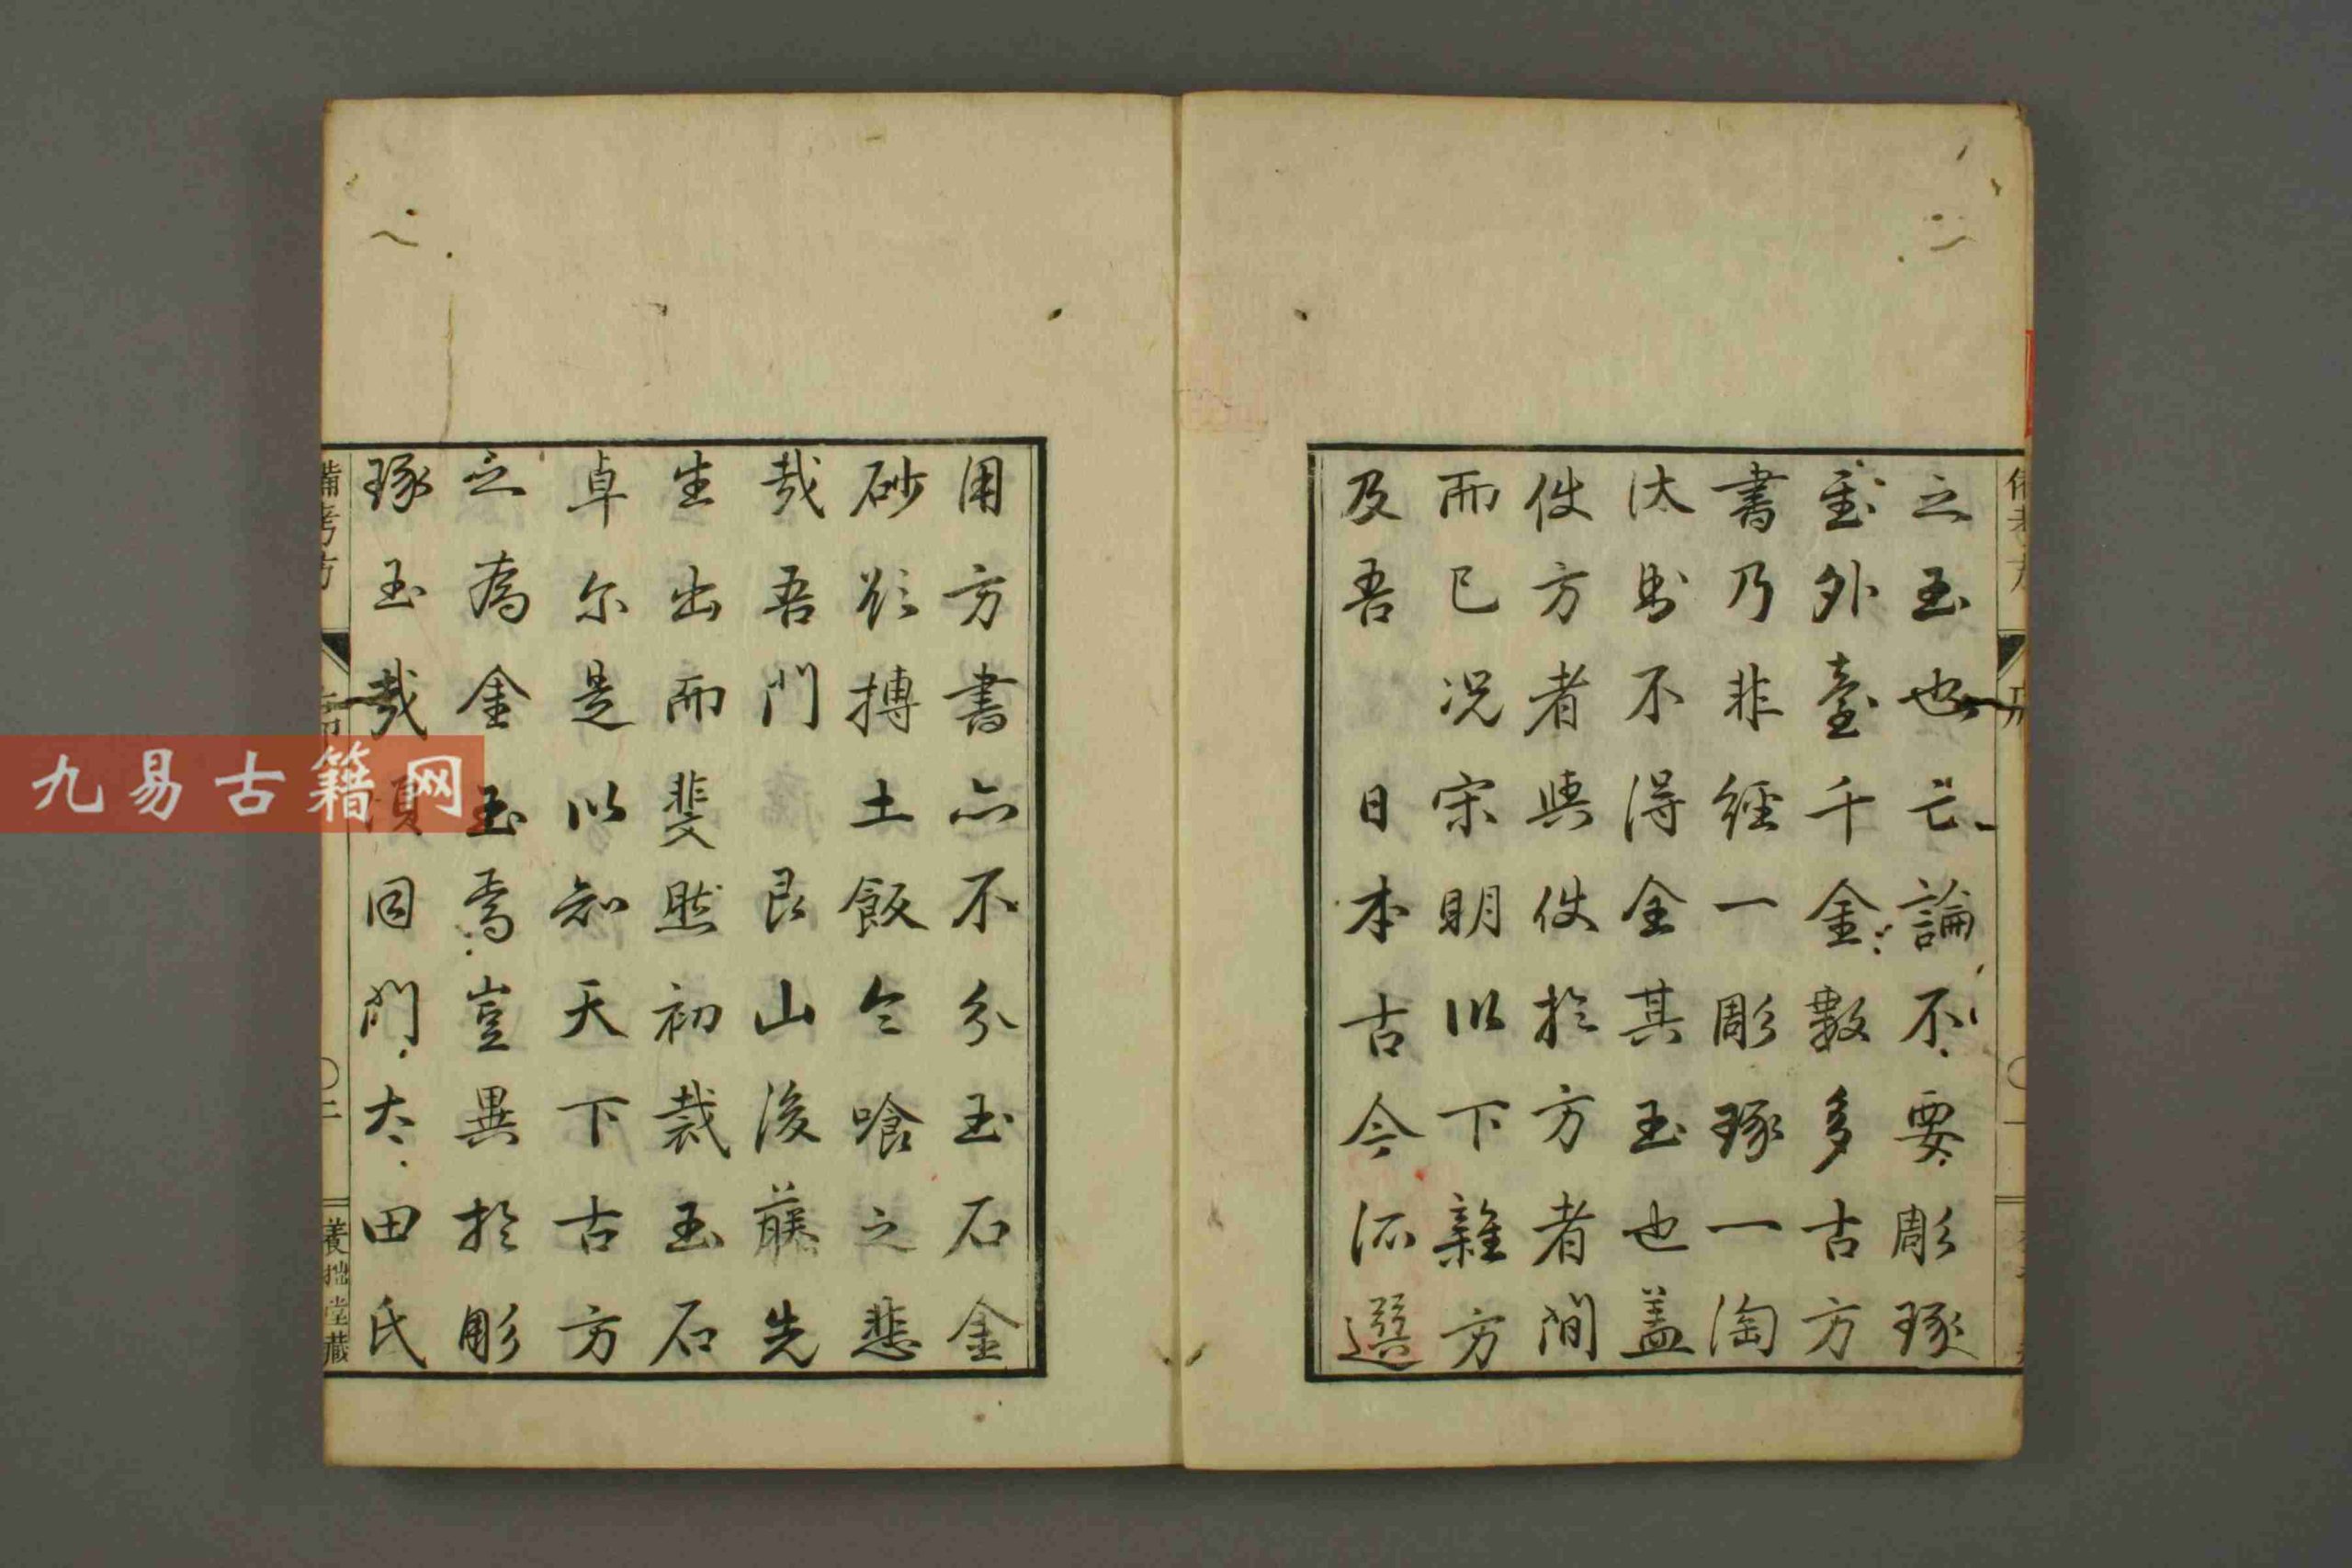 之玉也亡論不要彫琢
至外臺千金數多古方
書乃非經一彫琢一淘
汰則不得全其玉也蓋
佚方者與佚於方者間
而已況宋明以下雜方
及吾 日本古今所選
用方書亦不分玉石金
砂欲摶土飯令喰之悲
哉吾門 艮山後藤先
生出而斐然初裁玉石
卓尔是以知天下古方
之為金玉焉豈異於彫
琢玉哉頃同門太田氏
備考方
養拙堂藏
九易古籍网